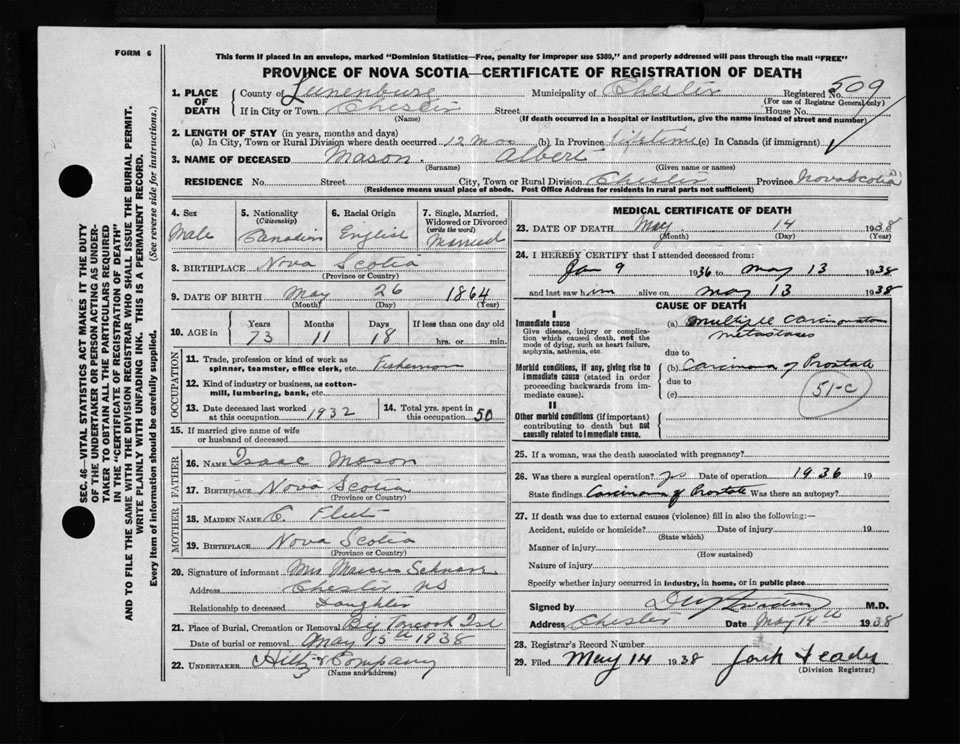 FORM 6
This form if placed in an envelope, marked "Dominion Statistics—Free, penalty for improper use $300," and properly addressed will pass through the mail "FREE"
PROVINCE OF NOVA SCOTIA—CERTIFICATE OF REGISTRATION OF DEATH
509
1. PLACE OF DEATH County of Lunenburg Municipality of Chester Registered No.
(For use of Registrar General only)
If in City or Town Chester Street House No.
(Name) (If death occurred in a hospital or institution, give the name instead of street and number)
2. LENGTH OF STAY (in years, months and days)
(a) In City, Town or Rural Division where death occurred 12 mos (b) In Province lifetime (c) In Canada (if immigrant)
3. NAME OF DECEASED Mason. Albert
(Surname) (Given name or names)
RESIDENCE No. Street City, Town or Rural Division Chester Province Nova Scotia
(Residence means usual place of abode. Post Office Address for residents in rural parts not sufficient)
SEC. 46—VITAL STATISTICS ACT MAKES IT THE DUTY
OF THE UNDERTAKER OR PERSON ACTING AS UNDER-
TAKER TO OBTAIN ALL THE PARTICULARS REQUIRED
IN THE "CERTIFICATE OF REGISTRATION OF DEATH"
AND TO FILE THE SAME WITH THE DIVISION REGISTRAR WHO SHALL ISSUE THE BURIAL PERMIT.
WRITE PLAINLY WITH UNFADING INK. THIS IS A PERMANENT RECORD.
Every item of information should be carefully supplied. (See reverse side for instructions.)
4. Sex
Male
5. Nationality
(Citizenship)
Canadian
6. Racial Origin
English
7. Single, Married,
Widowed or Divorced
(write the word)
Married
8. BIRTHPLACE Nova Scotia
(Province or Country)
9. DATE OF BIRTH May 26 1864
(Month) (Day) (Year)
10. AGE in Years Months Days If less than one day old
73 11 18 hrs. or min.
OCCUPATION
11. Trade, profession or kind of work as
spinner, teamster, office clerk, etc. Fisherman
12. Kind of industry or business, as cotton-
mill, lumbering, bank, etc.
13. Date deceased last worked
at this occupation 1932
14. Total yrs. spent in
this occupation 50
15. If married give name of wife
or husband of deceased
FATHER
16. NAME Isaac Mason
17. BIRTHPLACE Nova Scotia
(Province or Country)
MOTHER
18. MAIDEN NAME C. Fleet
19. BIRTHPLACE Nova Scotia
(Province or Country)
20. Signature of informant Mrs Marcus
Address Chester NS
Relationship to deceased Daughter
21. Place of Burial, Cremation or Removal Big Tancook Isl
Date of burial or removal May 15th 1938
22. UNDERTAKER Hiltz & Company
(Name and address)
MEDICAL CERTIFICATE OF DEATH
23. DATE OF DEATH May 14 1938
(Month) (Day) (Year)
24. I HEREBY CERTIFY that I attended deceased from:
Jan 9 1936 to May 13 1938
and last saw him alive on May 13 1938
CAUSE OF DEATH
I
Immediate cause
Give disease, injury or complica-
tion which caused death, not the
mode of dying, such as heart failure,
asphyxia, asthenia, etc.
(a) Multiple
metastases
due to
Morbid conditions, if any, giving rise to
immediate cause (stated in order
proceeding backwards from im-
mediate cause).
(b) Carcinoma of Prostate
due to
(c)
51-c
II
Other morbid conditions (if important)
contributing to death but not
causally related to immediate cause.
25. If a woman, was the death associated with pregnancy?
26. Was there a surgical operation? yes Date of operation 1936 19
State findings Carcinoma of Prostate Was there an autopsy?
27. If death was due to external causes (violence) fill in also the following:—
Accident, suicide or homicide? Date of injury 19
(State which)
Manner of injury
(How sustained)
Nature of injury
Specify whether injury occurred in industry, in home, or in public place
Signed by M.D.
Address Chester Date May 14th 1938
28. Registrar's Record Number
29. Filed May 14 1938
(Division Registrar)